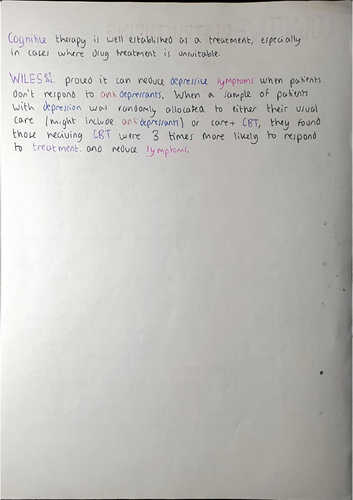 Cognitive therapy is well established as a treatment, especially
in cases where drug treatment is unsuitable.
WILES ET AL. proved it can reduce depressive symptoms when patients
don't respond to antidepressants. When a sample of patients
with depression was randomly allocated to either their usual
care (might include antidepressants) or care+ CBT, they found
those reciving CBT were 3 times more likely to respond
to treatment. and reduce symptoms.